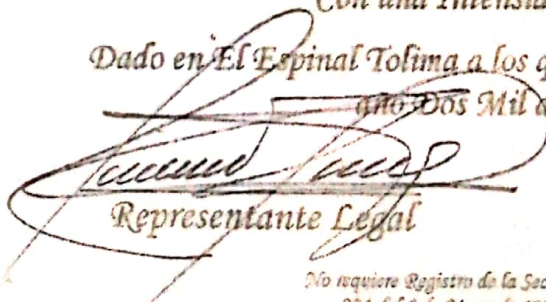 Con una Intensida
Dado en El Espinal Tolima a los q
año Dos Mil d
Representante Legal
No requiere Registro de la Sec